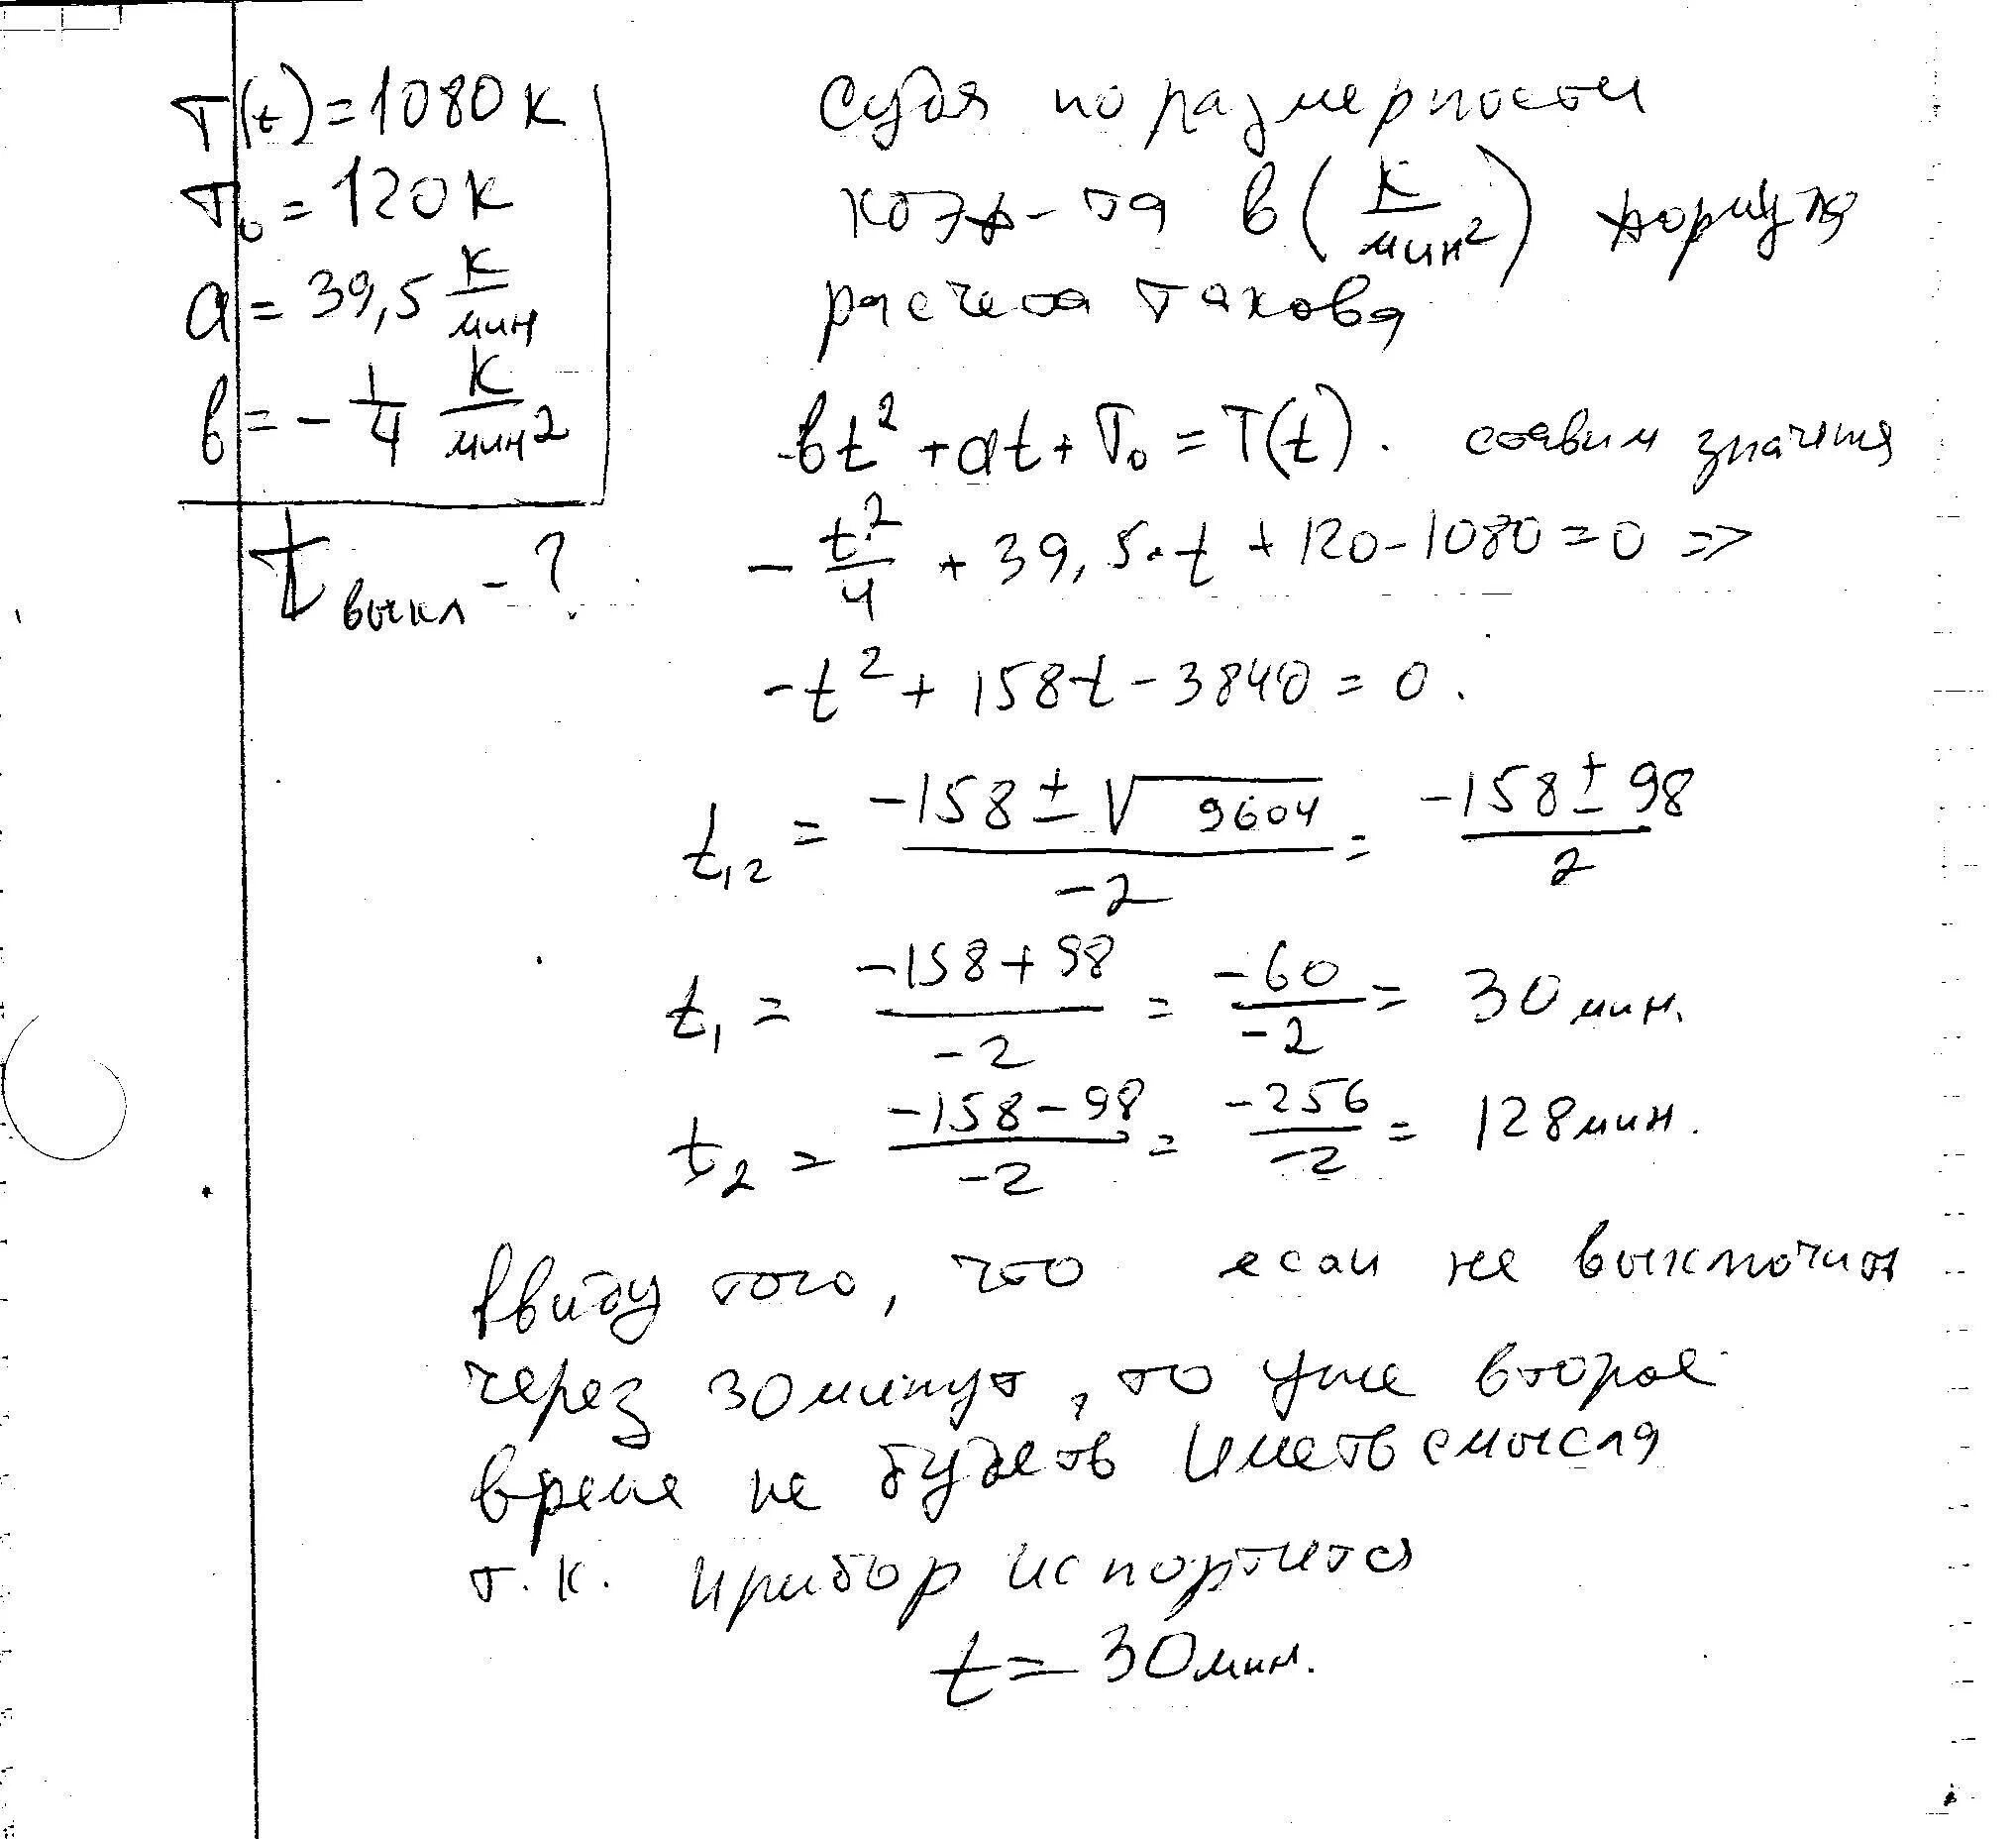 T(t)=1080 К
T₀=120 К
a=39,5 К/мин
в=-1/4 К/мин²
t выкл - ?
Судя по размерности
коэф-та в(К/мин²) формула
расчета такова
вt²+at+T₀=T(t). ставим значения
-t²/4+39,5·t+120-1080=0 =>
-t²+158t-3840=0.
t₁,₂=(-158±√9604)/-2=(-158±98)/2
t₁=(-158+98)/-2=-60/-2=30 мин.
t₂=(-158-98)/-2=-256/-2=128 мин.
Ввиду того, что если не выключит
через 30 минут, то уже второе
время не будеть иметь смысла
т.к. прибор испортится
t=30 мин.